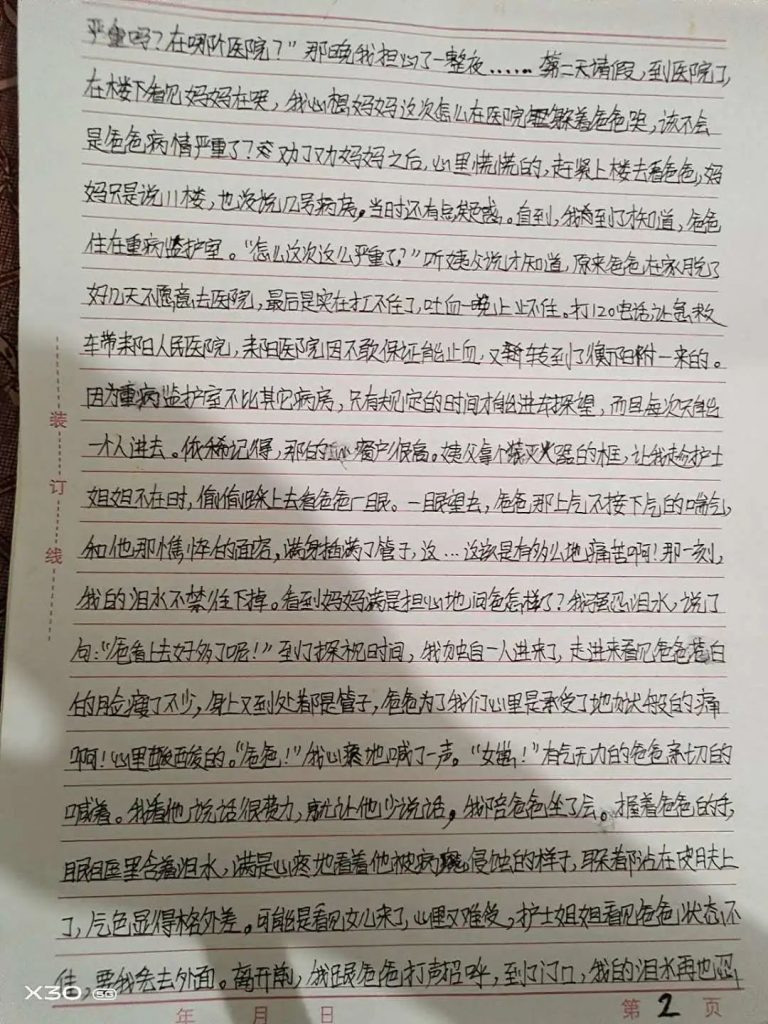 严重吗？在哪个医院？”那晚我担心了一整夜…… 第二天请假，到医院了，
在楼下看见妈妈在哭，我心想妈妈这次怎么在医院躲着爸爸哭，该不会
是爸爸病情严重了？劝了劝妈妈之后，心里慌慌的，赶紧上楼去看爸爸，妈
妈只是说11楼，也没说几号病房。当时还有点疑惑。直到，我到了才知道，爸爸
住在重病监护室。“怎么这次这么严重了？”听姨父说才知道，原来爸爸在家脱了
好几天不愿意去医院，最后是实在扛不住了，吐血一晚上止不住。打120电话让急救
车带耒阳人民医院，耒阳医院因不敢保证能止血，又转到了衡阳附一来的。
因为重病监护室不比其它病房，只有规定的时间才能进去探望，而且每次只能
一个人进去。依稀记得，那的窗户很高。姨父拿个装灭火器的框，让我趁护士
姐姐不在时，偷偷踩上去看爸爸一眼。一眼望去，爸爸那上气不接下气的喘气，
和他那憔悴的面容，满身插满了管子，这…这该是有多么地痛苦啊！那一刻，
我的泪水不禁往下掉。看到妈妈满是担心地问爸怎样了？我强忍泪水，说了
句：“爸看上去好多了呢！”到了探视时间，我独自一人进来了，走进来看见爸爸苍白
的脸瘦了不少，身上又到处都是管子，爸爸为了我们心里是承受了地狱般的痛
啊！心里酸酸的。“爸爸！”我心疼地喊了一声。“女崽！”有气无力的爸爸亲切的
喊着。我看他说话很费力，就让他少说话，我陪爸爸坐了会。握着爸爸的手，
眼眶里含着泪水，满是心疼地看着他被病魔侵蚀的样子，都沾在皮肤上
了，气色显得格外差。可能是看见女儿来了，心里又难受，护士姐姐看见爸爸状态不
佳，要我先去外面。离开前，我跟爸爸打声招呼，到了门口，我的泪水再也忍
装
订
线
年 月 日
第 2 页
X30 5G